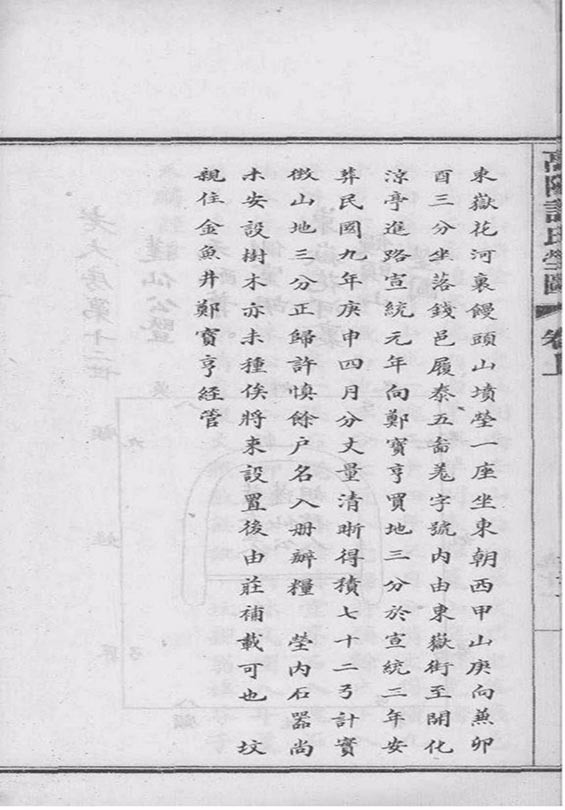 東嶽花河裏饅頭山墳塋一座坐東朝西甲山庚向兼卯
酉三分坐落錢邑履泰五啚羗字號内由東嶽街至開化
涼亭進路宣統元年向鄭寶亨買地三分於宣統三年安
葬民國九年庚申四月分丈量清晰得積七十二弓計實
徵山地三分正歸許慎餘户名入册辦糧 塋内石器尚
未安設樹木亦未種俟將來設置後由莊補載可也 坟
親住金魚井鄭寶亨經管
高陽許氏塋圖 卷上